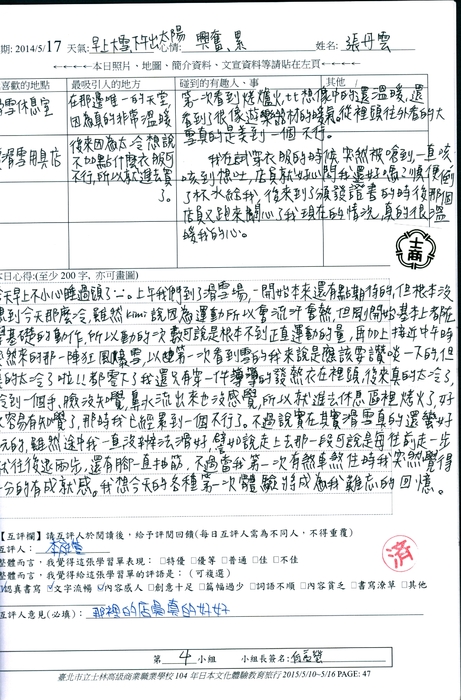 期: 2014/5/17 天氣: 早上大雪下午出太陽 心情: 興奮、累 姓名: 張丹雲
本日照片、地圖、簡介資料、文宣資料等請貼在左頁
喜歡的地點 最吸引人的地方 碰到的有趣人、事 其他
滑雪休息室
在那邊唯一的天堂,
因為真的非常溫暖
第一次看到烤爐火比想像中的還溫暖,還
看到了很像遊樂器材的暖氣。從裡頭往外看的大
雪真的是美到一個不行。
滑雪用具店
後來因為太冷想說
不如點什麼衣服可
不行,所以就進去買
了。
我在試穿衣服的時候突然被嗆到,一直咳
咳到想吐,店員就好心問我還好嗎?順便倒
了杯水給我,後來到了頒發證書的時後那個
店員又跑來關心了我現在的情況,真的很溫
暖我的心。
士商
本日心得:(至少 200 字, 亦可畫圖)
今天早上不小心睡過頭了...。上午我們到了滑雪場,一開始本來還有點期待的,但根本沒
想到今天那麼冷,雖然kimi說因為運動所以會流汗會熱,但剛開始基本上都在
學基礎的動作,所以動的次數可說是根本不到正直運動的量,再加上接近中午時
突然來的那一陣狂風爆雪,以
真的太冷了啦!!都零下了我還只有穿一件薄薄的發熱衣在裡頭,後來真的太冷了,
冷到一個手、臉沒知覺,鼻水流出來也沒感覺,所以就進去休息區裡烤火了,好
不容易有知覺了,那時我已經累到一個不行了。不過說實在其實滑雪真的還蠻好
玩的,雖然途中我一直沒辦法滑好,譬如說走上去那一段可說是每往前走一步
就往後退兩步,還有腳一直抽筋,不過當我第一次有煞車煞住時我突然覺得
十分的有成就感。我想今天的各種第一次體驗將成為我難忘的回憶。
【互評欄】請互評人於閱讀後,給予評閱回饋(每日互評人需為不同人,不得重覆)
互評人:
整體而言,我覺得這張學習單表現: □特優 □優等 □普通 □佳 □不佳
整體而言,我覺得給這張學習單的評語是: (可複選)
☑認真書寫 ☑文字流暢 ☑內容感人 □創意十足 □篇幅過少 □詞語不順 □內容貧乏 □書寫潦草 □其他
互評人意見(必填): 那裡的店員真的好好
済
第 4 小組 小組長簽名:
臺北市立士林高級商業職業學校 104 年日本文化體驗教育旅行 2015/5/10~5/16 PAGE: 47